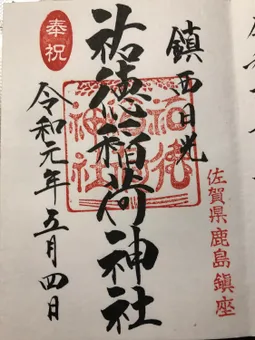 鎮西日光
佐賀県鹿島鎮座
祐徳稲荷神社
奉祝
令和元年五月四日